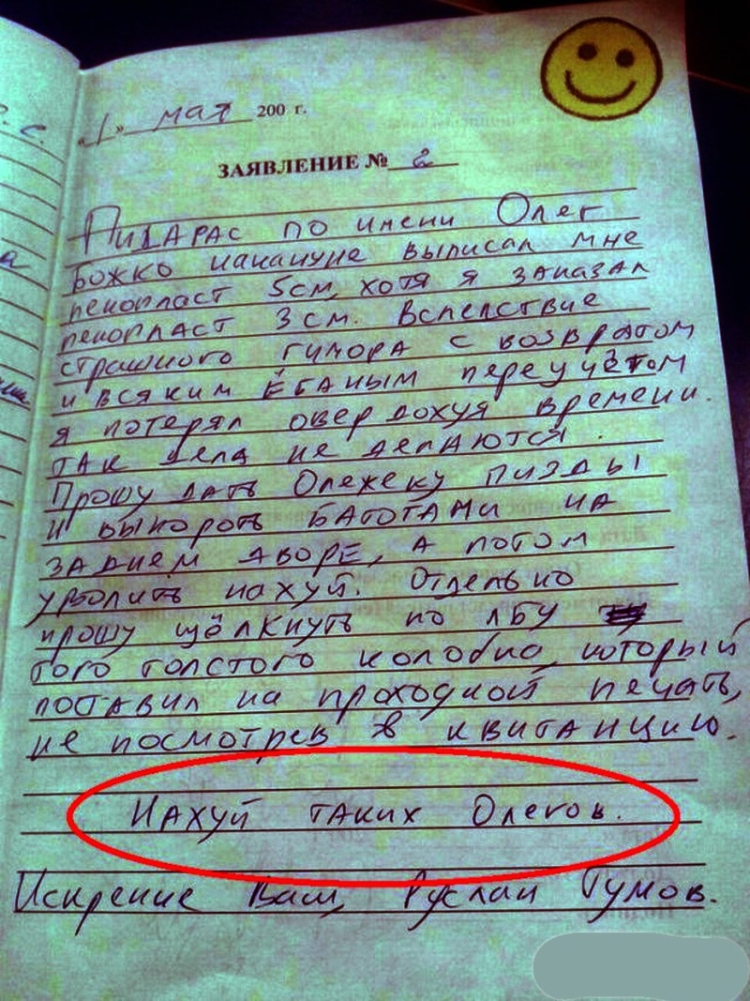 «1» мая 200 г.
ЗАЯВЛЕНИЕ № 2
Пидарас по имени Олег
Божко накануне выписал мне
пенопласт 5см, хотя я заказал
пенопласт 3 см. Вследствие
страшного гимора с возвратом
и всяким ёбаным переучётом
я потерял овердохуя времени.
Так дела не делаются.
Прошу дать Олежеку пизды
и выпороть батогами на
заднем дворе, а потом
уволить нахуй. Отдельно
прошу щёлкнуть по лбу
того толстого колобка, который
поставил на проходной печать,
не посмотрев в квитанцию.
Нахуй таких Олегов.
Искренне Ваш, Руслан Гумов.